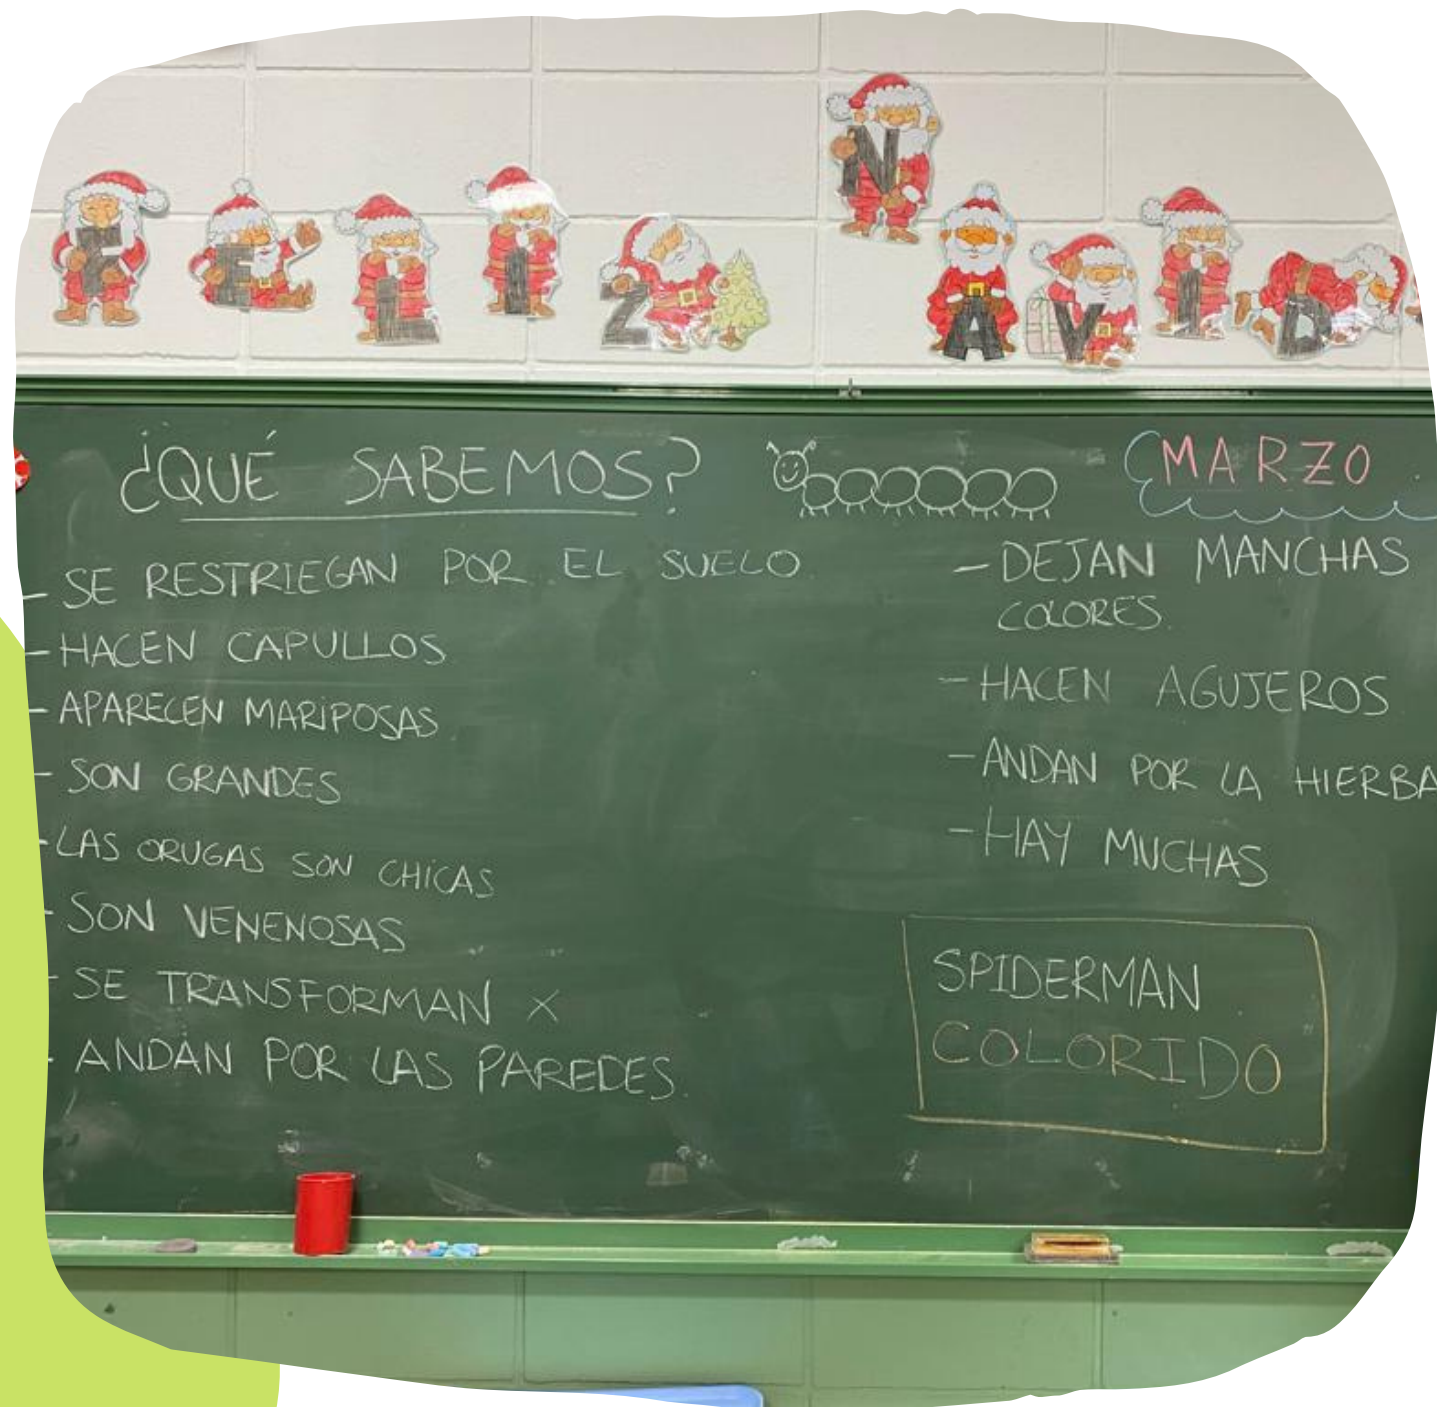 FELIZ NAVID
¿QUÉ SABEMOS?
- SE RESTRIEGAN POR EL SUELO
- HACEN CAPULLOS
- APARECEN MARIPOSAS
- SON GRANDES
- LAS ORUGAS SON CHICAS
- SON VENENOSAS
- SE TRANSFORMAN X
- ANDAN POR LAS PAREDES.
MARZO
- DEJAN MANCHAS
COLORES.
- HACEN AGUJEROS
- ANDAN POR LA HIERBA
- HAY MUCHAS
SPIDERMAN
COLORIDO